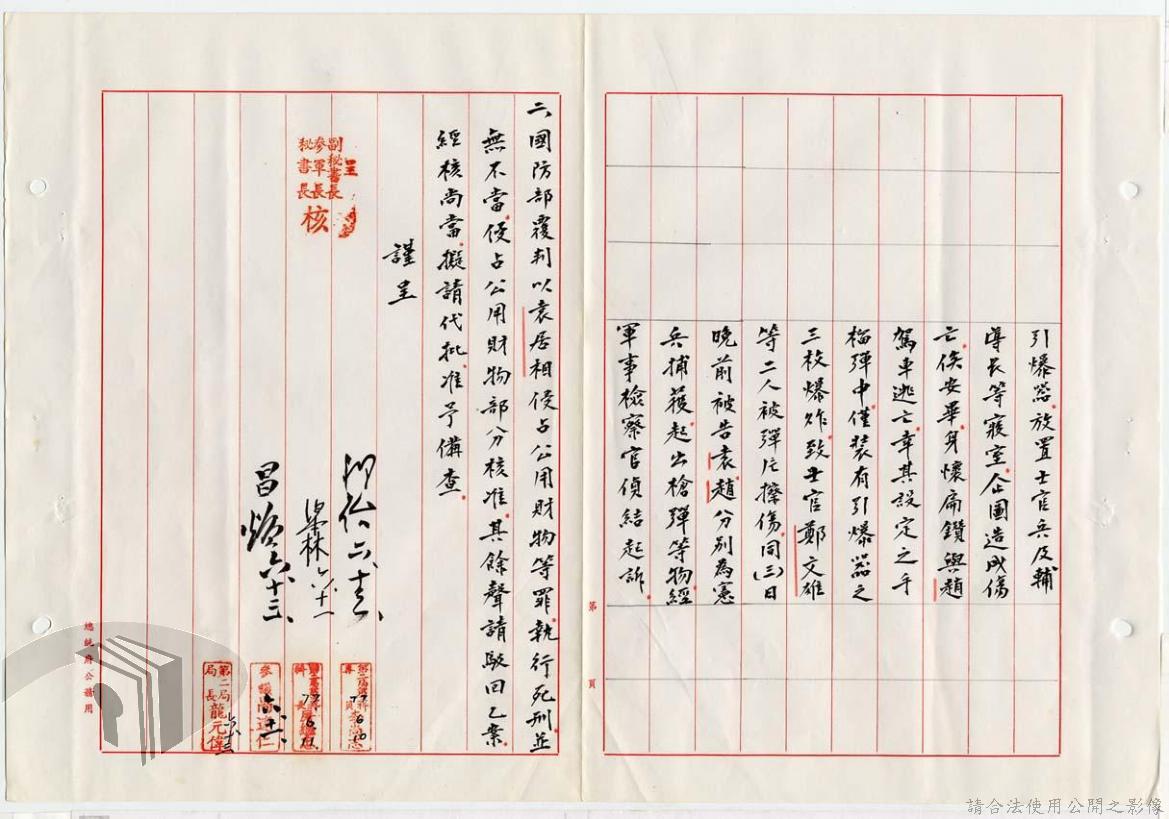 引爆器,放置士官兵及輔
導長等寢室,企圖造成傷
亡,俟安畢,身懷扁鑽與趙
駕車逃亡,幸其設定之手
榴彈中,僅裝有引爆器之
三枚爆炸,致士官鄭文雄
等二人被彈片擦傷,同(三)日
晚前被告袁、趙分別為憲
兵捕獲,起出槍彈等物,經
軍事檢察官偵結起訴。
第 頁
二、國防部覆判以袁居相侵占公用財物等罪,執行死刑,並
無不當,侵占公用財物部分核准,其餘聲請駁回乙案,
經核尚當,擬請代批:准予備查。
謹呈
呈
副秘書長
參軍長
秘書長
核
昌煥 六、十三、
參議
第二局
局長龍元偉
總統府公務用
請合法使用公開之影像